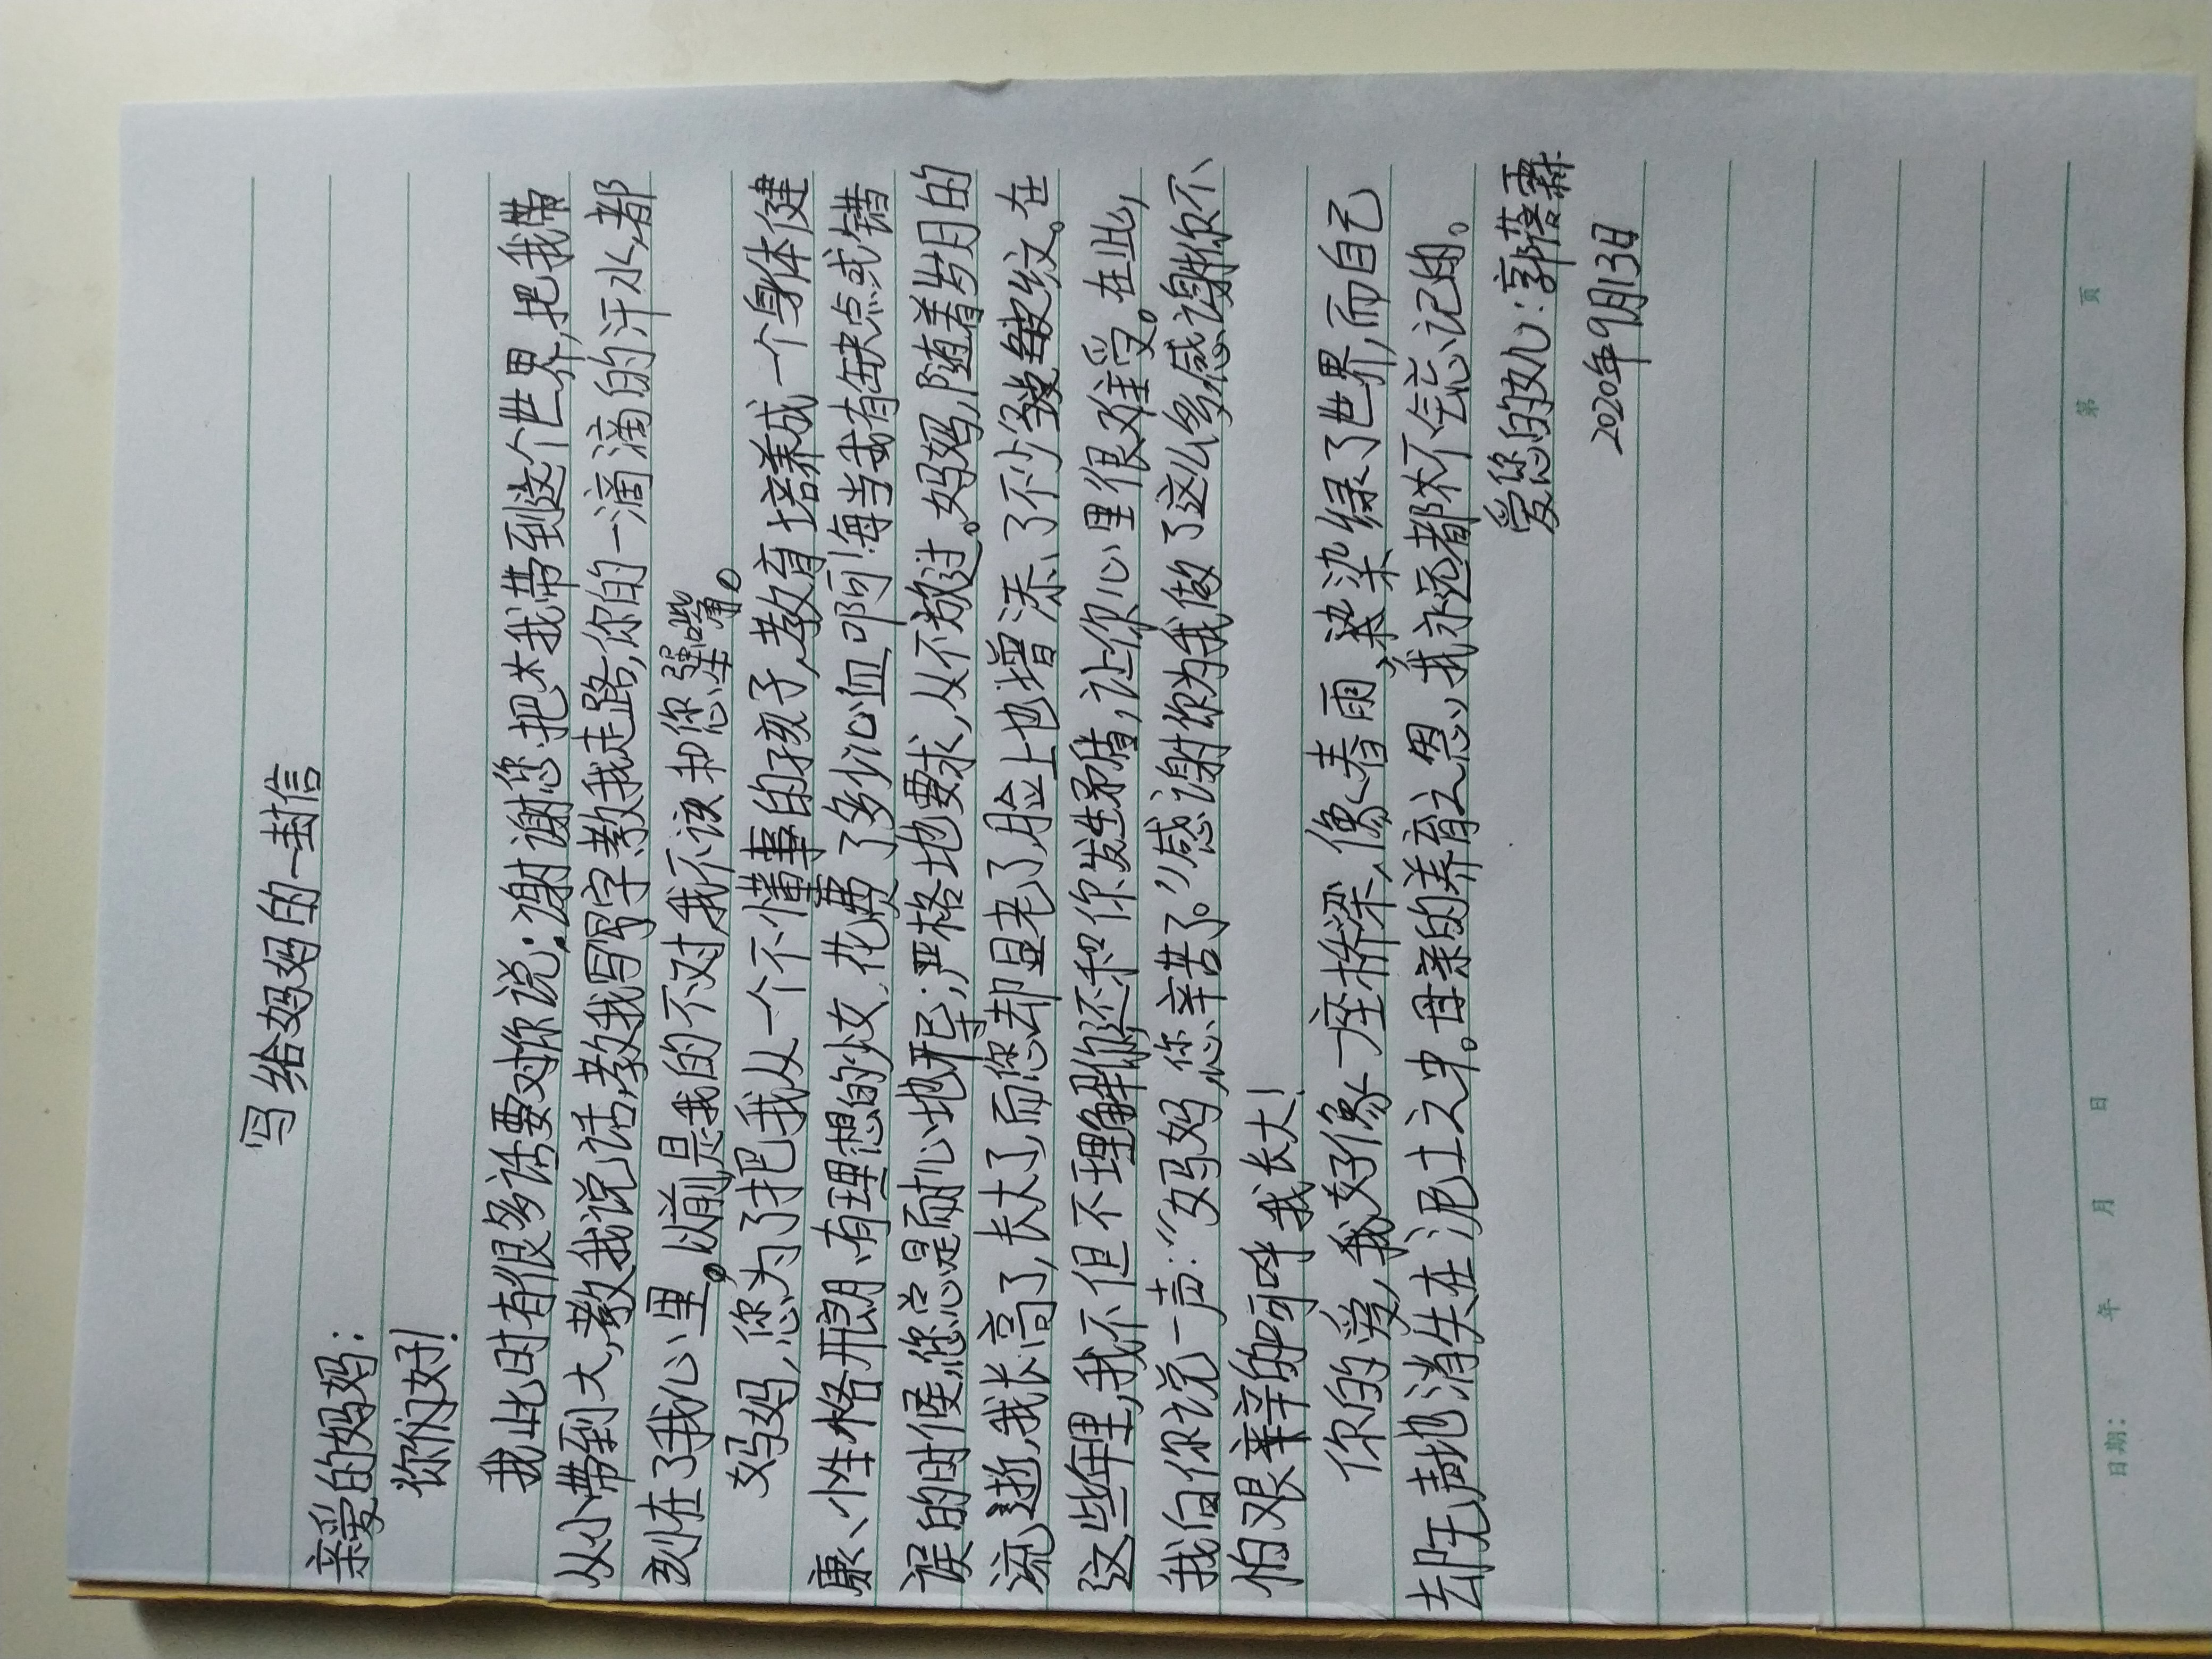 写给妈妈的一封信
亲爱的妈妈:
你们好!
我此时有很多话要对你说:谢谢您把我带到这个世界,把我带
从小带到大,教我说话,教我写字教我走路,你的一滴滴的汗水,都
刻在了我心里。以前是我的不对我不该和您犟嘴。
妈妈,您为了把我从一个不懂事的孩子,教育培养成一个身体健
康、小性格开朗、有理想的少女,花费了多少心血啊!每当我有缺点或错
误的时候,您总是耐心地开导;严格地要求,从不放过。妈妈,随着岁月的
流逝,我长高了,长大了,而您却显老了,脸上也增添了不少皱纹。在
这些年里,我不但不理解你,还和你发生矛盾,让你心里很难受。在此,
我向你说一声:“妈妈,您辛苦了。”感谢你为我做了这么多,感谢你不
怕艰辛的呵呼我长大!
你的爱,我好像一座桥梁,像春雨,染绿了世界,而自己
去阡无声地消失在泥土之中。母亲的养育之恩,我永远都不会忘记的。
爱您的女儿:郭蓓霖
2020年9月13日
日期: 年 月 日 第 页